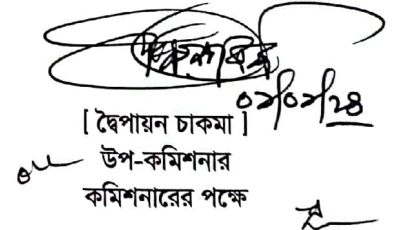 ০১/০১/২৪
[ দ্বৈপায়ন চাকমা ]
উপ-কমিশনার
কমিশনারের পক্ষে